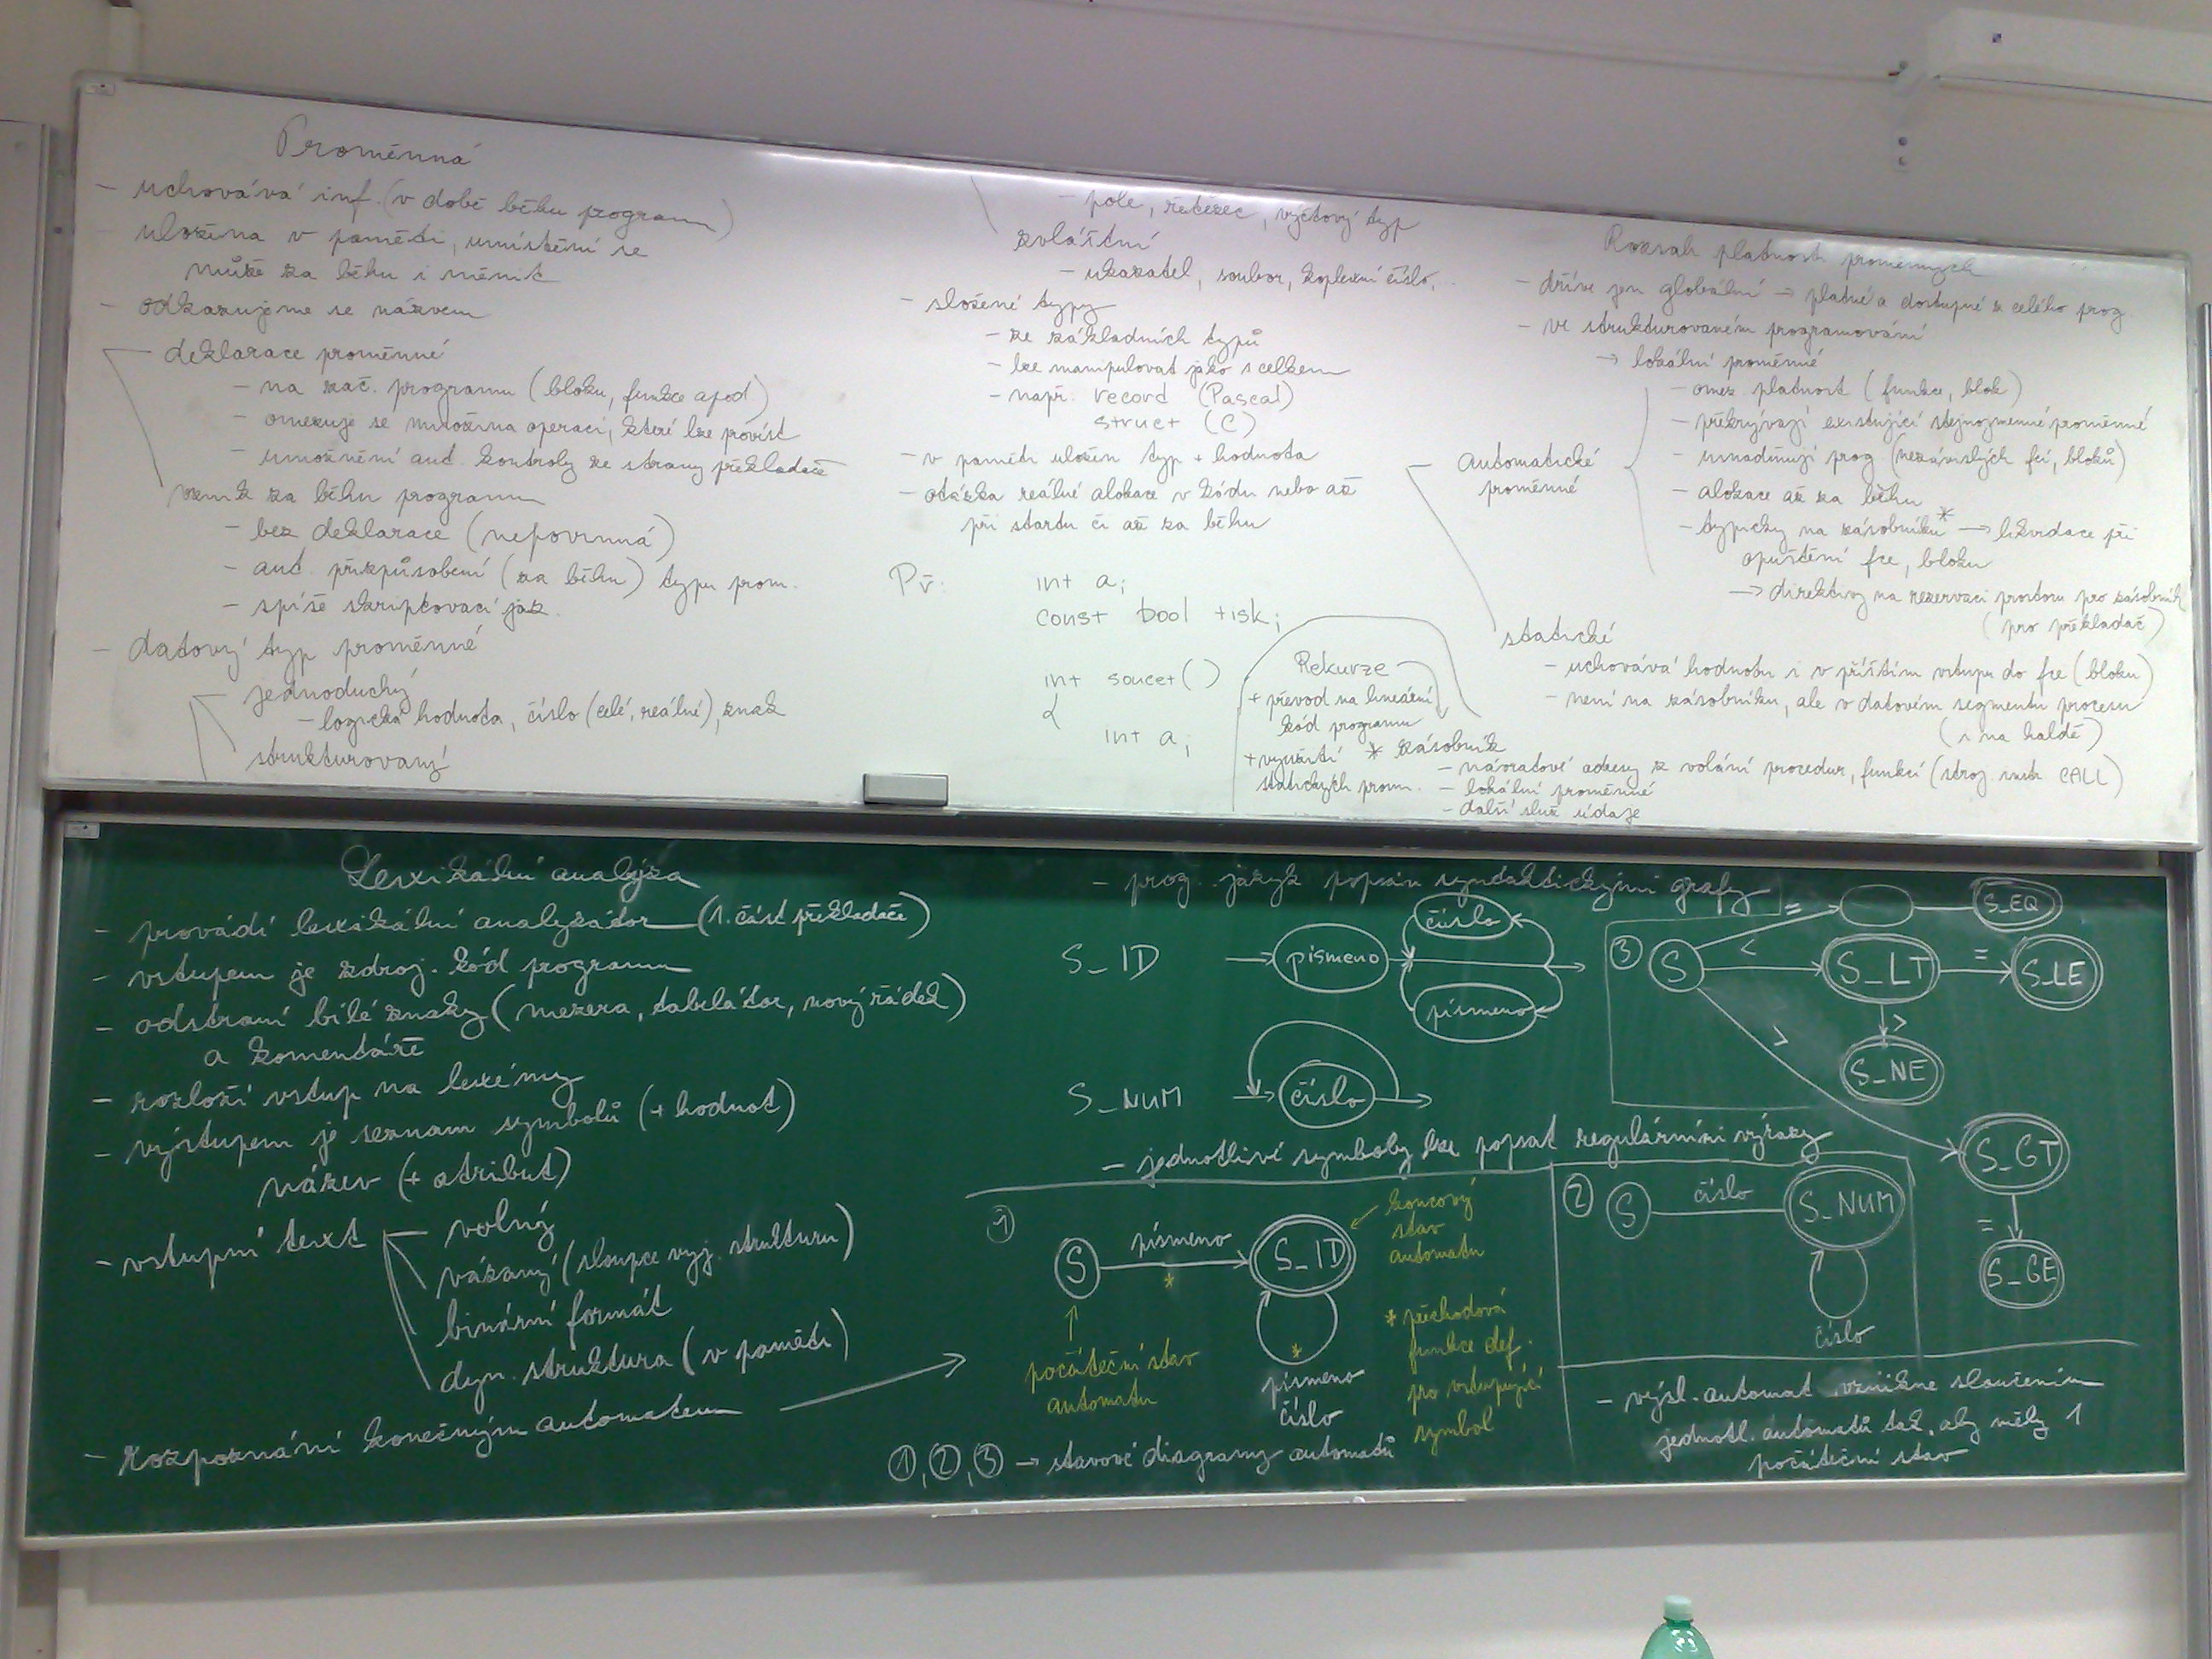 Proměnná
- uchovává inf. (v době běhu program)
- uložena v paměti, umístění se
může za běhu i měnit
- odkazujeme se názvem
deklarace proměnné
- na zač. programu (bloku, funkce apod)
- omezuje se množina operací, které lze provést
- umožnění aut. kontroly ze strany překladače
vznik za běhu programu
- bez deklarace (nepovinná)
- aut. přizpůsobení (za běhu) typu prom.
- spíše skriptovací jaz.
- datový typ proměnné
jednoduchý
- logická hodnota, číslo (celé, reálné), znak
strukturovaný
- pole, řetězec, výčtový typ
zvláštní
- ukazatel, soubor, koplexní číslo,..
- složené typy
- ze základních typů
- lze manipulovat jako s celkem
- např. record (Pascal)
struct (C)
- v paměti uložen typ + hodnota
- otázka reálné alokace v kódu nebo až
při startu či až za běhu
Př: int a;
const bool tisk;
int soucet()
{
int a;
Rekurze
+ převod na lineární
kód programu
+ využití
statických prom.
Rozsah platnosti proměnných
- dříve jen globální → platné a dostupné z celého prog.
- ve strukturovaném programování
→ lokální proměnné
automatické
proměnné
- omez. platnost (funkce, blok)
- překrývají existující stejnojmenné proměnné
- usnadňují prog (nezávislých fcí, bloků)
- alokace až za běhu
- typicky na zásobníku* → likvidace při
opuštění fce, bloku
→ direktivy na rezervaci prostoru pro zásobník
(pro překladač)
statické
- uchovává hodnotu i v příštím vstupu do fce (bloku)
- není na zásobníku, ale v datovém segmentu procesu
(i na haldě)
* zásobník
- návratové adresy z volání procedur, funkcí (stroj. instr. CALL)
- lokální proměnné
- další služ. údaje
Lexikální analýza
- provádí lexikální analyzátor (1. část překladače)
- vstupem je zdroj. kód programu
- odstraní bílé znaky (mezera, tabelátor, nový řádek)
a komentáře
- rozloží vstup na lexémy
- výstupem je seznam symbolů (+ hodnot)
název (+ atribut)
- vstupní text
volný
vázaný (sloupce vyj. strukturu)
binární formát
dyn. struktura (v paměti)
- rozpoznání konečným automatem
- prog. jazyk popsán syntaktickými grafy
S_ID → písmeno
číslo
písmeno
S_NUM → číslo
- jednotlivé symboly lze popsat regulárními výrazy
①
S písmeno S_ID
*
počáteční stav
automatu
*
písmeno
číslo
koncový
stav
automatu
* přechodová
funkce def.
pro vstupující
symbol
①, ②, ③ → stavové diagramy automatů
②
S číslo S_NUM
číslo
③
S
= S_EQ
< S_LT = S_LE
> S_NE
> S_GT
= S_GE
- výsl. automat vznikne sloučením
jednotl. automatů tak, aby měly 1
počáteční stav